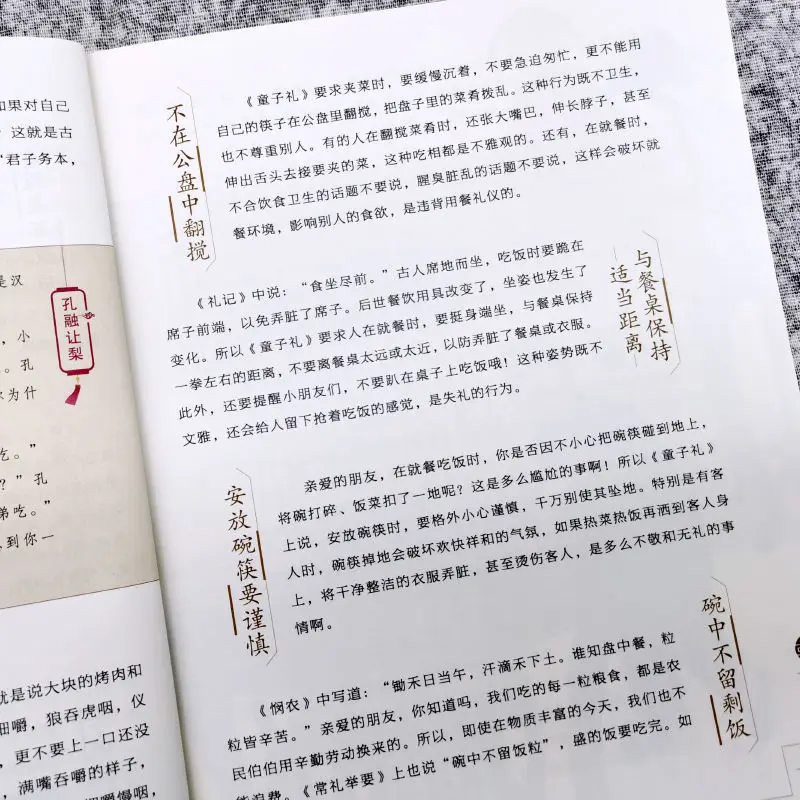 和果对自己
？这就是古
“君子务本，
是汉
孔融让梨
，小
。孔
你为什
吃。”
？”孔
弟吃。”
到你一
就是说大块的烤肉和
细嚼，狼吞虎咽，仪
，更不要上一口还没
，满嘴吞嚼的样子，
细嚼慢咽，
不在公盘中翻搅
《童子礼》要求夹菜时，要缓慢沉着，不要急迫匆忙，更不能用
自己的筷子在公盘里翻搅，把盘子里的菜肴拨乱。这种行为既不卫生，
也不尊重别人。有的人在翻搅菜肴时，还张大嘴巴，伸长脖子，甚至
伸出舌头去接要夹的菜，这种吃相都是不雅观的。还有，在就餐时，
不合饮食卫生的话题不要说，腥臭脏乱的话题不要说，这样会破坏就
餐环境，影响别人的食欲，是违背用餐礼仪的。
与餐桌保持
适当距离
《礼记》中说：“食坐尽前。”古人席地而坐，吃饭时要跪在
席子前端，以免弄脏了席子。后世餐饮用具改变了，坐姿也发生了
变化。所以《童子礼》要求人在就餐时，要挺身端坐，与餐桌保持
一拳左右的距离，不要离餐桌太远或太近，以防弄脏了餐桌或衣服。
此外，还要提醒小朋友们，不要趴在桌子上吃饭哦！这种姿势既不
文雅，还会给人留下抢着吃饭的感觉，是失礼的行为。
安放碗筷要谨慎
亲爱的朋友，在就餐吃饭时，你是否因不小心把碗筷碰到地上，
将碗打碎、饭菜扣了一地呢？这是多么尴尬的事啊！所以《童子礼》
上说，安放碗筷时，要格外小心谨慎，千万别使其坠地。特别是有客
人时，碗筷掉地会破坏欢快祥和的气氛，如果热菜热饭再洒到客人身
上，将干净整洁的衣服弄脏，甚至烫伤客人，是多么不敬和无礼的事
情啊。
碗中不留剩饭
《悯农》中写道：“锄禾日当午，汗滴禾下土。谁知盘中餐，粒
粒皆辛苦。”亲爱的朋友，你知道吗，我们吃的每一粒粮食，都是农
民伯伯用辛勤劳动换来的。所以，即使在物质丰富的今天，我们也不
能浪费。《常礼举要》上也说“碗中不留饭粒”，盛的饭要吃完。如